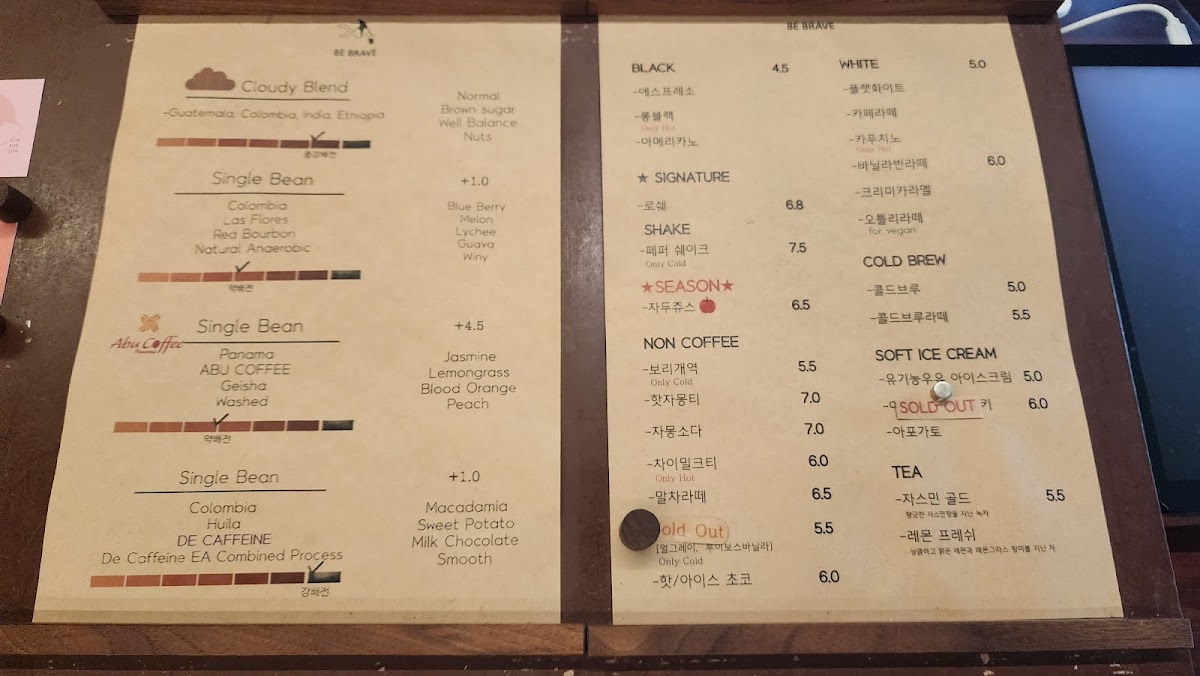 BE BRAVE
Cloudy Blend
-Guatemala, Colombia, India, Ethiopia
Normal
Brown sugar
Well Balance
Nuts
중강배전
Single Bean
+1.0
Colombia
Las Flores
Red Bourbon
Natural Anaerobic
Blue Berry
Melon
Lychee
Guava
Winy
약배전
Abu Coffee
Panama
Single Bean
+4.5
Panama
ABU COFFEE
Geisha
Washed
Jasmine
Lemongrass
Blood Orange
Peach
약배전
Single Bean
+1.0
Colombia
Huila
DE CAFFEINE
De Caffeine EA Combined Process
Macadamia
Sweet Potato
Milk Chocolate
Smooth
강배전
BE BRAVE
BLACK 4.5
-에스프레소
-롱블랙
Only Hot
-아메리카노
★ SIGNATURE
-로쉐 6.8
SHAKE
-페퍼 쉐이크 7.5
Only Cold
★SEASON★
-자두쥬스 6.5
NON COFFEE
-보리개역 5.5
Only Cold
-핫자몽티 7.0
-자몽소다 7.0
-차이밀크티 6.0
Only Hot
-말차라떼 6.5
old Out 5.5
[얼그레이, 루이보스바닐라]
Only Cold
-핫/아이스 초코 6.0
WHITE 5.0
-플랫화이트
-카페라떼
-카푸치노
Only Hot
-바닐라빈라떼 6.0
-크리미카라멜
-오틀리라떼
for vegan
COLD BREW
-콜드브루 5.0
-콜드브루라떼 5.5
SOFT ICE CREAM
-유기농우유 아이스크림 5.0
SOLD OUT 키 6.0
-아포가토
TEA
-자스민 골드 5.5
향긋한 자스민향을 지닌 녹차
-레몬 프레쉬
상큼하고 맑은 레몬과 레몬그라스 향미를 지닌 차